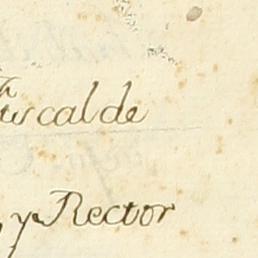 uscalde
y Rector